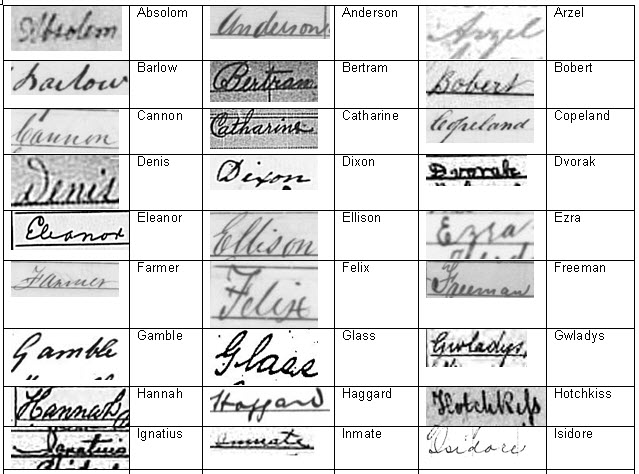 Absolom Absolom Anderson Anderson Arzel Arzel
Barlow Barlow Bertram Bertram Bobert Bobert
Cannon Cannon Catharine Catharine Copeland Copeland
Denis Denis Dixon Dixon Dvorak Dvorak
Eleanor Eleanor Ellison Ellison Ezra Ezra
Farmer Farmer Felix Felix Freeman Freeman
Gamble Gamble Glass Glass Gwladys Gwladys
Hannah Hannah Haggard Haggard Hotchkiss Hotchkiss
Ignatius Ignatius Inmate Inmate Isidore Isidore